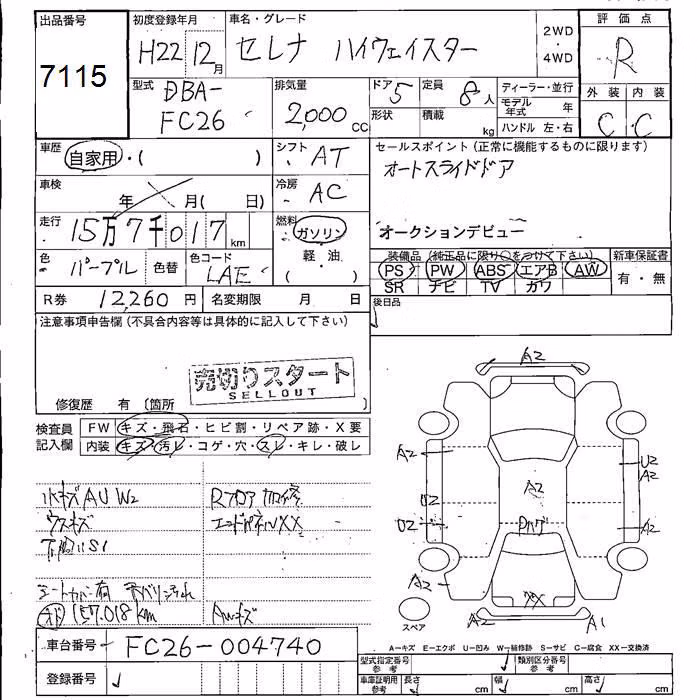 出品番号
7115
初度登録年月
H22 12月
車名・グレード
セレナ ハイウェイスター
2WD
・
4WD
評価点
R
型式
DBA-
FC26
排気量
2,000 CC
ドア 5
形状
定員 8人
積載 kg
ディーラー・並行
モデル年式 年
ハンドル 左・右
外装 内装
C C
車歴
自家用・( )
シフト AT
セールスポイント(正常に機能するものに限ります)
オートスライドドア
オークションデビュー
車検 年 月( 日)
冷房 AC
走行 15万7千017km
燃料
ガソリン
軽・油
( )
色 パープル 色替
色コード LAE
装備品(純正品に限り○をつけて下さい)
PS PW ABS エアB AW
SR ナビ TV カワ
新車保証書
有・無
R券 12,260円
名変期限 月 日
後日品
注意事項申告欄(不具合内容等は具体的に記入して下さい)
売切りスタート
SELLOUT
修復歴 有〔箇所 〕
検査員
記入欄
FW キズ・飛石・ヒビ割・リペア跡・X要
内装 キズ・汚レ・コゲ・穴・スレ・キレ・破レ
小キズAUW2
ウスキズ
Rフロア加修
エンドパネルXX
シートカバー有
157,018km
AWキズ
A2
A2
U2
A2
U2
U2
A2
A2
A2
XX
A2
A1
スペア
車台番号 FC26-004740
登録番号
A－キズ E－エクボ U－凹み W－補修跡 S－サビ C－腐食 XX－交換済
型式指定番号
参考
類別区分番号
参考
車庫証明用
参考
長さ cm 幅 cm 高さ cm